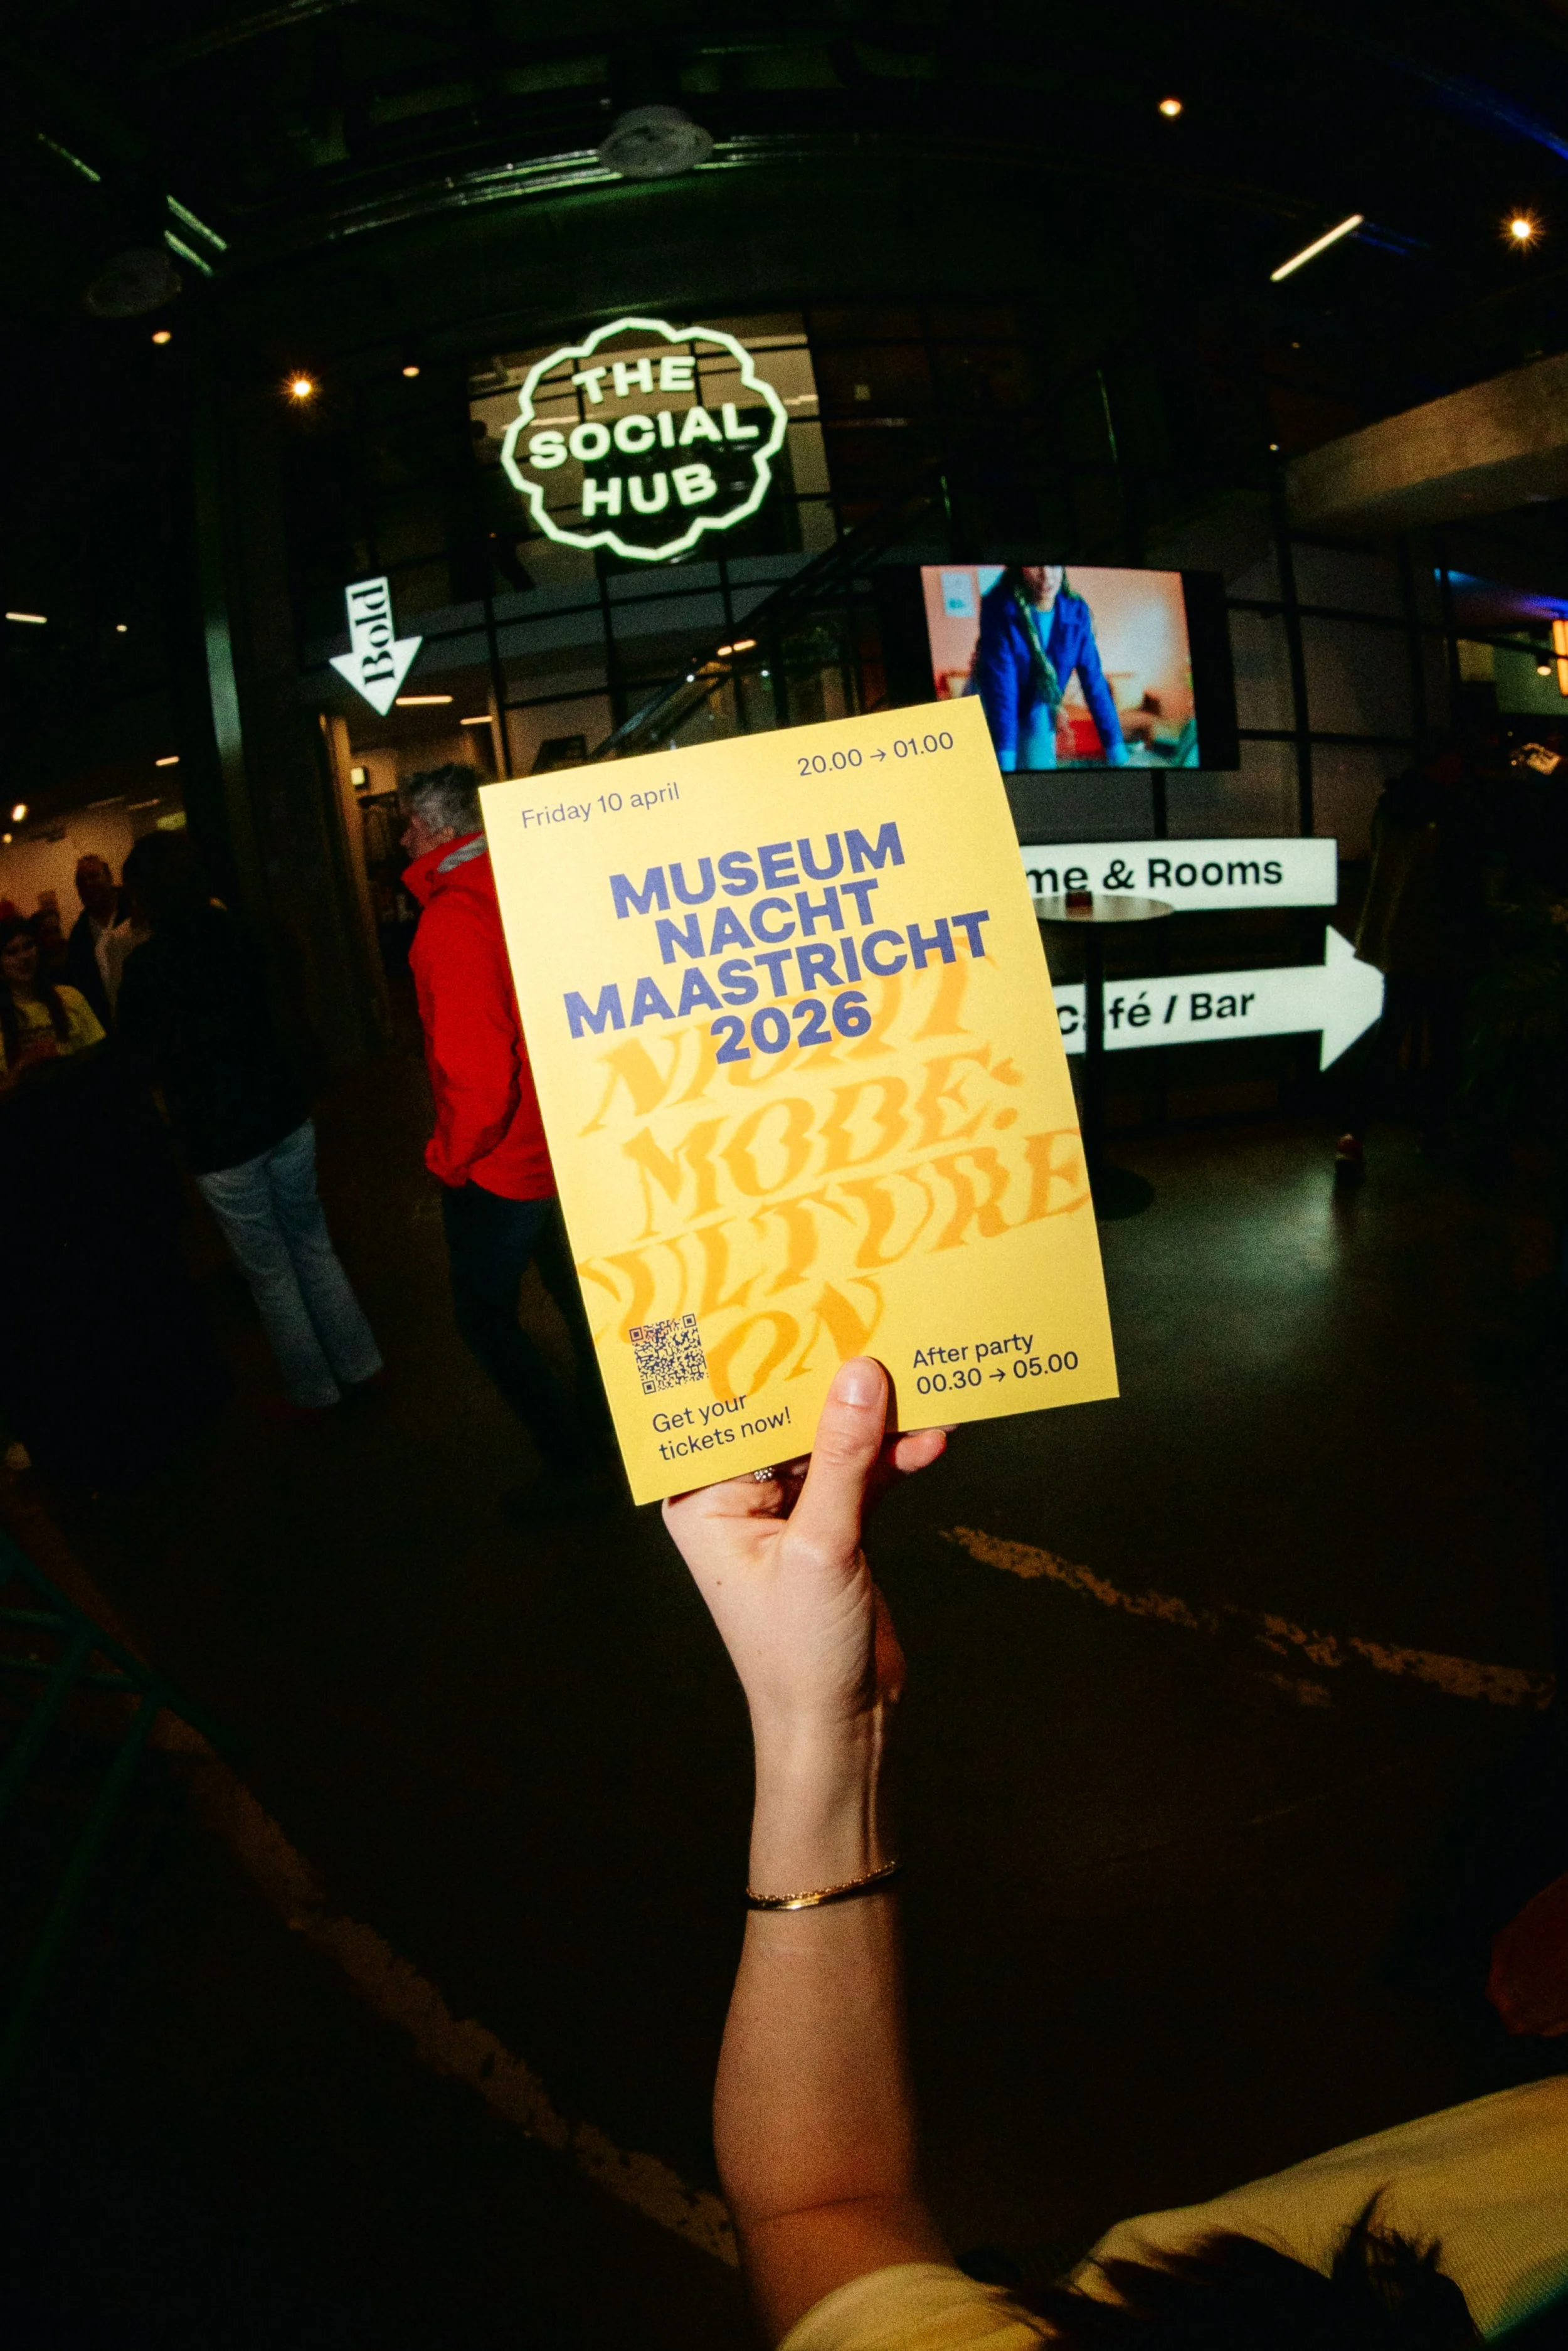 THE
SOCIAL
HUB
Bold
Friday 10 april
20.00 → 01.00
MUSEUM
NACHT
MAASTRICHT
2026
NIGHT
MODE:
CULTURE
ON
Get your
tickets now!
After party
00.30 → 05.00
& Rooms
/ Bar